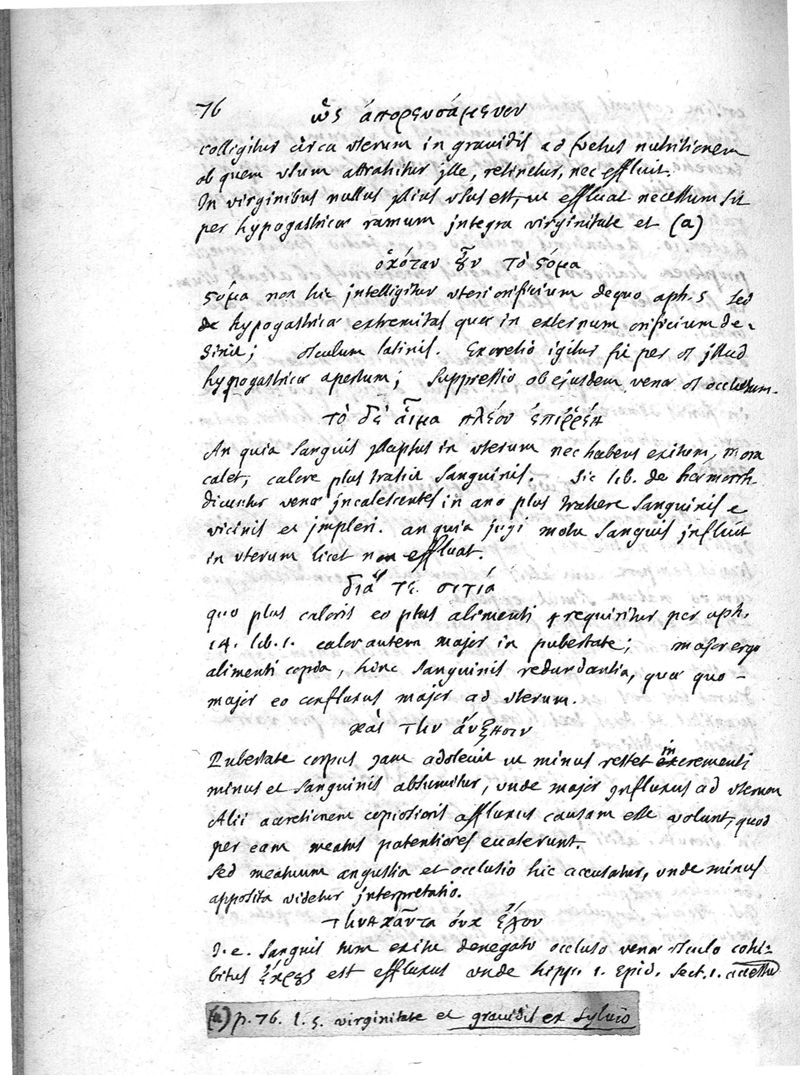 76 ὡς ἀπορευσάμενον
colligitur circa uterum in gravidis ad foetus nutritionem
ob quem usum attrahitur ille, retinetur, nec effluit.
In virginibus nullus illius usus est, ut effluat necessum sit
per hypogastricæ ramum integra virginitate et (a)
ὁκόταν οὖν τὸ στόμα
στόμα non hic intelligitur uteri orificium de quo aph. 5 sed
hypogastricæ extremitas quæ in externum orificium de-
sinit; osculum latinis. Excretio igitur fit per os illud
hypogastricæ apertum; suppressio ob ejusdem venæ os occlusum.
τὸ δὲ αἷμα πλέον ἐπιῤῥέῃ
An quia sanguis illapsus in uterum nec habens exitum, mora
calet, calore plus trahit sanguinis. Sic lib. de hæmorrh.
dicuntur venæ incalescentes in ano plus trahere sanguinis e
vicinis et impleri. an quia jugi motu sanguis influit
in uterum licet non effluat.
διά τε σιτία
quo plus caloris eo plus alimenti requiritur per aph.
14. lib. 1. calor autem major in pubertate; major ergo
alimenti copia, hinc sanguinis redundantia, quæ quo -
major eo confluxus major ad uterum.
καὶ τὴν αὔξησιν
Pubertate corpus jam adolevit ut minus restet incrementi
minus et sanguinis absumitur, unde major influxus ad uterum
Alii accretionem copiosioris affluxus causam esse volunt, quod
per eam meatus patentiores evaserunt.
sed meatuum angustia et occlusio hic accusatur, unde minus
apposita videtur interpretatio.
τηνικαῦτα οὐκ ἔχον
I. e. sanguis tum exitu denegato occluso venæ osculo cohi-
bitus ἔκρους est effluxus unde hipp. 1. Epid. sect. 1.
(a) p. 76. l. 5. virginitate et gravidis ex sylvio